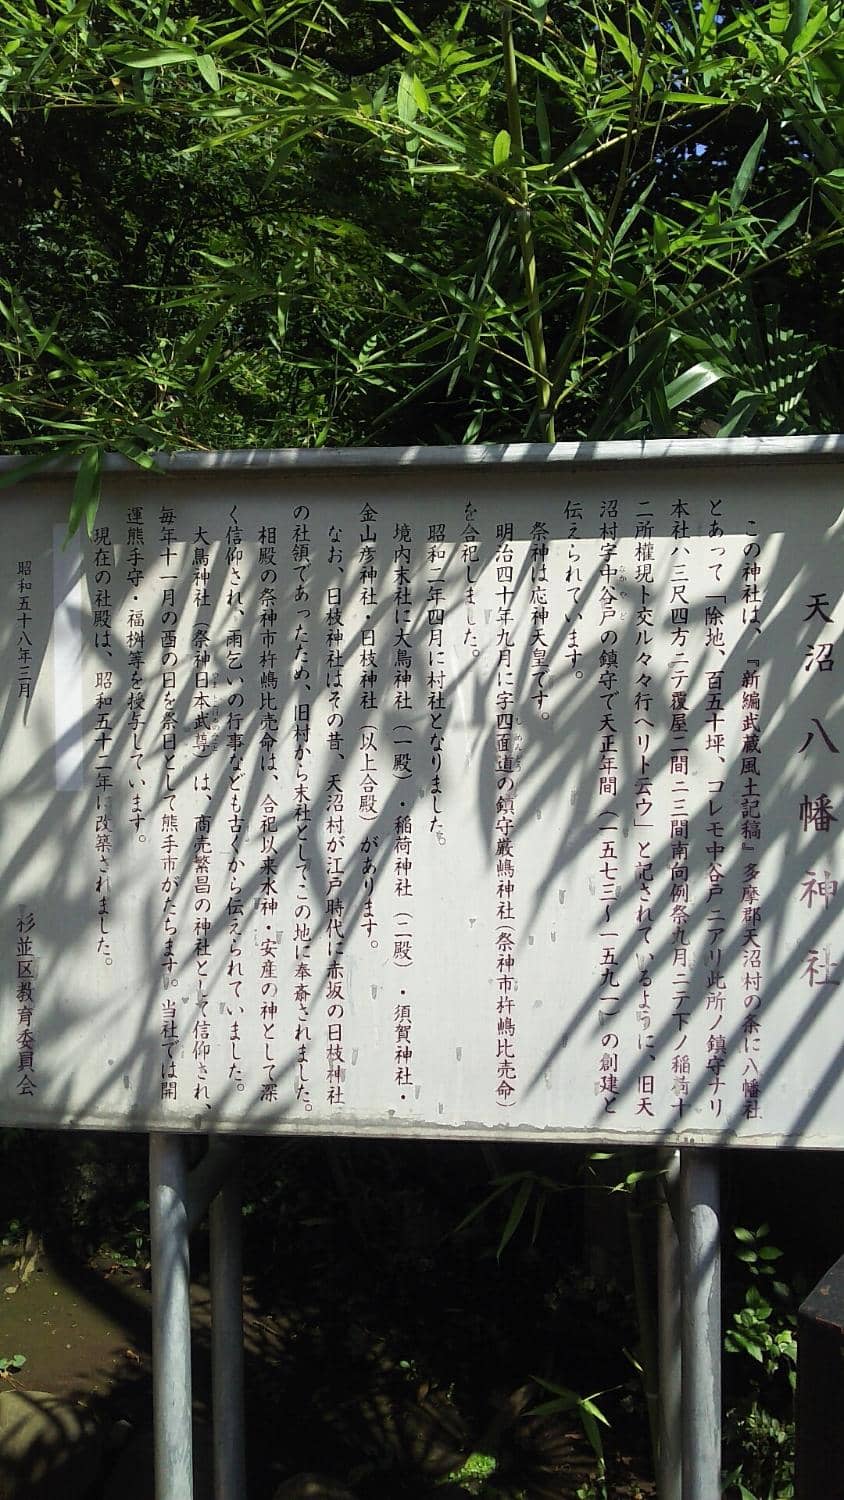 天沼八幡神社
この神社は、『新編武蔵風土記稿』多摩郡天沼村の条に八幡社
とあって「除地、百五十坪、コレモ中谷戸ニアリ此所ノ鎮守ナリ
本社ハ三尺四方ニテ覆屋二間ニ三間南向例祭九月ニテ下ノ稲荷十
二所権現ト交ル々々行ヘリト云ウ」と記されているように、旧天
沼村字中谷戸の鎮守で天正年間（一五七三～一五九一）の創建と
伝えられています。
祭神は応神天皇です。
明治四十年九月に字四面道の鎮守厳嶋神社（祭神市杵嶋比売命）
を合祀しました。
昭和二年四月に村社となりました。
境内末社に大鳥神社（一殿）・稲荷神社（二殿）・須賀神社・
金山彦神社・日枝神社（以上合殿）があります。
なお、日枝神社はその昔、天沼村が江戸時代に赤坂の日枝神社
の社領であったため、旧村から末社としてこの地に奉斎されました。
相殿の祭神市杵嶋比売命は、合祀以来水神・安産の神として深
く信仰され、雨乞いの行事なども古くから伝えられていました。
大鳥神社（祭神日本武尊）は、商売繁昌の神社として信仰され、
毎年十一月の酉の日を祭日として熊手市がたちます。当社では開
運熊手守・福桝等を授与しています。
現在の社殿は、昭和五十二年に改築されました。
昭和五十八年三月
杉並区教育委員会